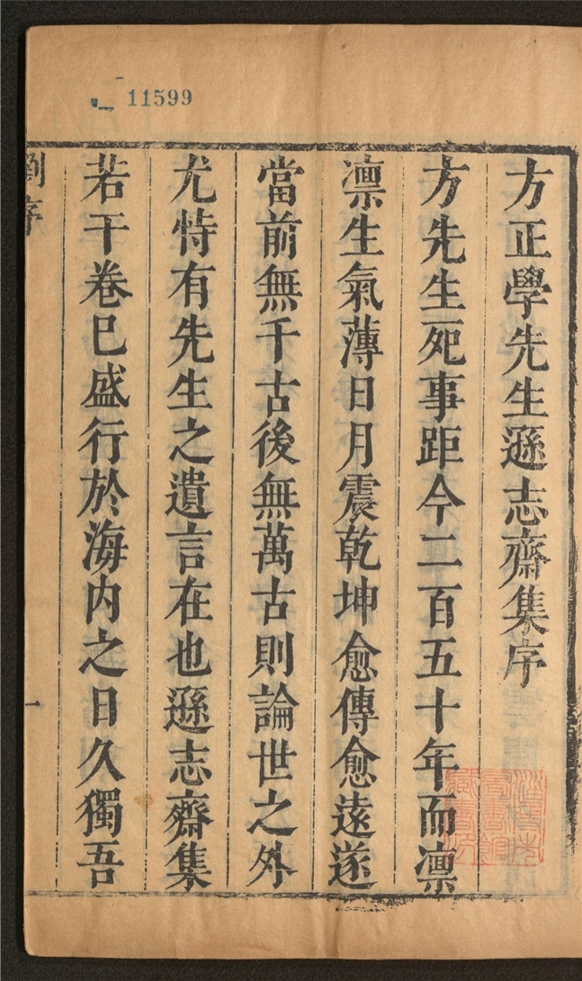 11599
方正學先生遜志齋集序
方先生死事距今二百五十年而凛
凛生氣薄日月震乾坤愈傳愈遠遂
當前無千古後無萬古則論世之外
尤恃有先生之遺言在也遜志齋集
若干卷已盛行於海內之日久獨吾
劉序
一